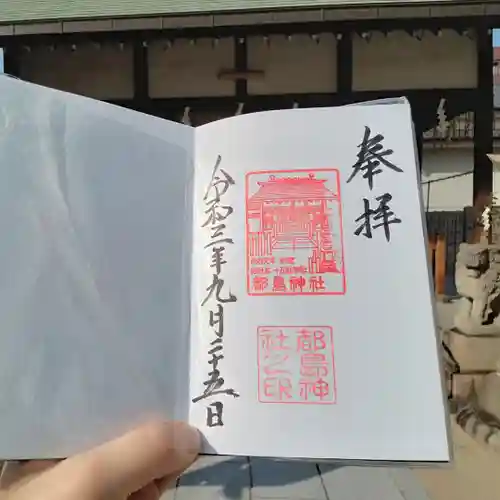 奉拝
都島神社
都島神
社之印
令和三年九月二十五日